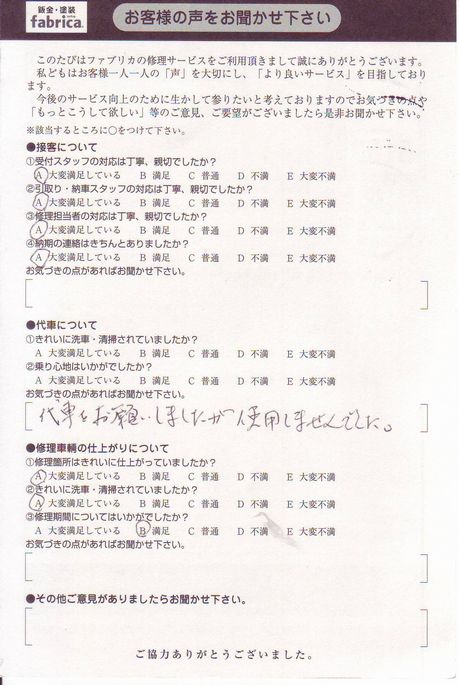 鈑金・塗装
fabrica.
お客様の声をお聞かせ下さい
このたびはファブリカの修理サービスをご利用頂きまして誠にありがとうございます。
私どもはお客様一人一人の「声」を大切にし、「より良いサービス」を目指しており
ます。
今後のサービス向上のために生かして参りたいと考えておりますのでお気づきの点や
「もっとこうして欲しい」等のご意見、ご要望がございましたら是非お聞かせ下さい。
※該当するところに○をつけて下さい。
●接客について
①受付スタッフの対応は丁寧、親切でしたか？
A 大変満足している B 満足 C 普通 D 不満 E 大変不満
②引取り・納車スタッフの対応は丁寧、親切でしたか？
A 大変満足している B 満足 C 普通 D 不満 E 大変不満
③修理担当者の対応は丁寧、親切でしたか？
A 大変満足している B 満足 C 普通 D 不満 E 大変不満
④納期の連絡はきちんとありましたか？
A 大変満足している B 満足 C 普通 D 不満 E 大変不満
お気づきの点があればお聞かせ下さい。
●代車について
①きれいに洗車・清掃されていましたか？
A 大変満足している B 満足 C 普通 D 不満 E 大変不満
②乗り心地はいかがでしたか？
A 大変満足している B 満足 C 普通 D 不満 E 大変不満
お気づきの点があればお聞かせ下さい。
代車をお願いしましたが使用しませんでした。
●修理車輌の仕上がりについて
①修理箇所はきれいに仕上がっていましたか？
A 大変満足している B 満足 C 普通 D 不満 E 大変不満
②きれいに洗車・清掃されていましたか？
A 大変満足している B 満足 C 普通 D 不満 E 大変不満
③修理期間についてはいかがでしたか？
A 大変満足している B 満足 C 普通 D 不満 E 大変不満
お気づきの点があればお聞かせ下さい。
●その他ご意見がありましたらお聞かせ下さい。
ご協力ありがとうございました。